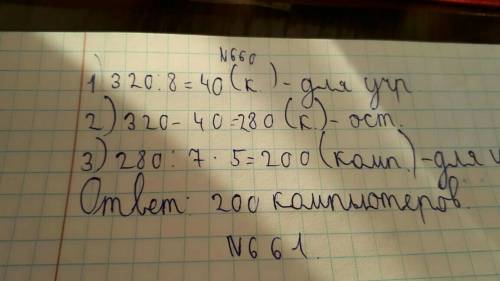 N660
1) 320:8=40(к.)- для учр
2) 320-40=280(к.)-ост.
3) 280:7·5=200(комп.)-для у
Ответ: 200 компьютеров.
N661.